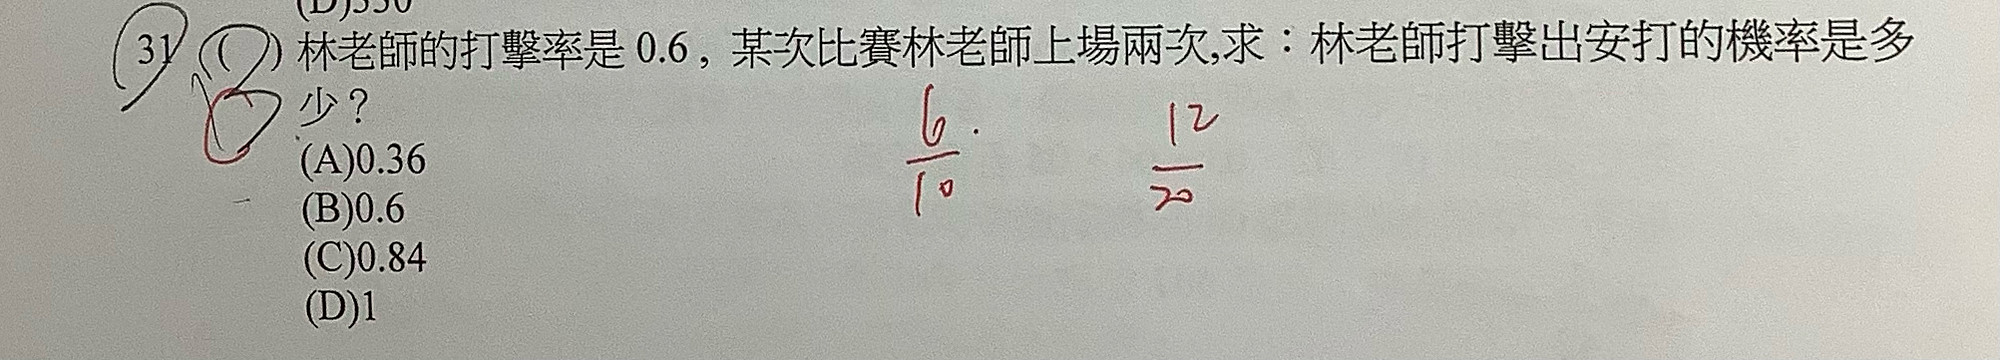 (D)330
31 ( ) 林老師的打擊率是 0.6 , 某次比賽林老師上場兩次,求：林老師打擊出安打的機率是多
少？
(A)0.36
(B)0.6
(C)0.84
(D)1
6/10 . 12/20